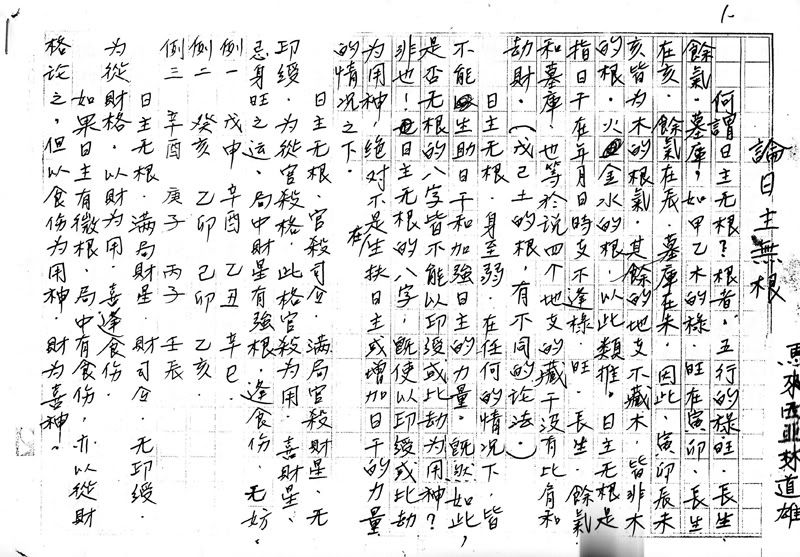 1.
論日主無根
馬來西亞林道雄
何謂日主无根?根者.五行的祿旺.長生
餘氣.墓庫,如甲乙木的祿.旺在寅卯.長生
在亥.餘氣在辰.墓庫在未.因此.寅卯辰未
亥皆為木的根氣.其餘的地支不藏木.皆非木
的根.火金水的根.以此類推.日主无根是
指日干在年月日時支不逢祿.旺.長生.餘氣
和墓庫.也等於说四个地支的藏干没有比肩和
劫財.(戊己土的根,有不同的论法.)
日主无根.身至弱.在任何的情况下.皆
不能生助日干和加強日主的力量.既然如此,
是否无根的八字皆不能以印绶或比劫为用神?
非也!日主无根的八字,既使以印绶或比劫
为用神,绝对不是在生扶日主或增加日干的力量
的情况之下.
日主无根.官殺司令.满局官殺財星.无
印绶.为從官殺格.此格官殺为用.喜財星.
忌身旺之运.局中財星有強根.逢食伤.无妨.
例一 戊申 辛酉 乙丑 辛巳.
例二 癸亥 乙卯 己卯 乙亥.
例三 辛酉 庚子 丙子 壬辰
日主无根.满局財星.財司令.无印绶.
为從財格.以財为用.喜逢食伤.
如果日主有微根.局中有食伤,亦以從財
格论之,但以食伤为用神.財为喜神.